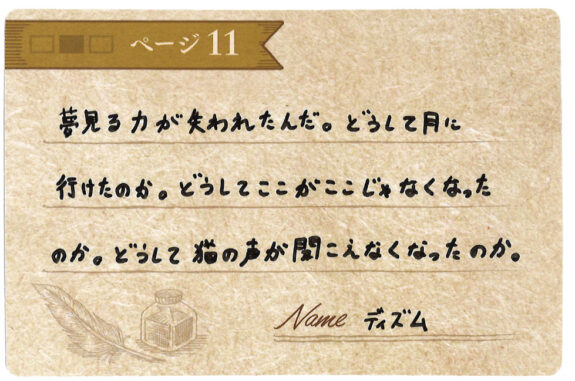 ページ 11
夢見る力が失われたんだ。どうして月に
行けたのか。どうしてここがここじゃなくなった
のか。どうして猫の声が聞こえなくなったのか。
Name ディズム